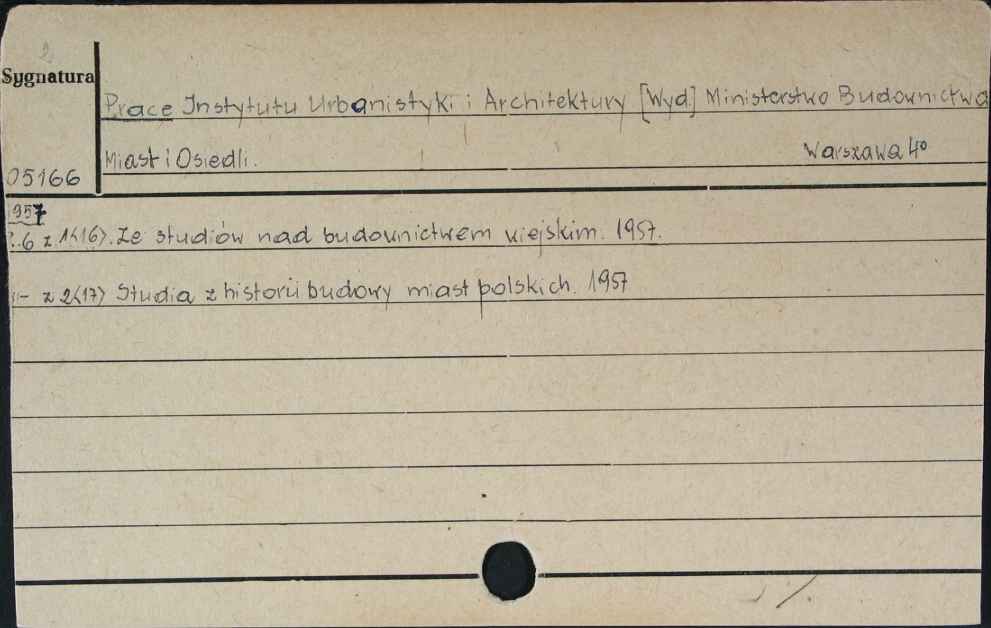 Sygnatura
Prace Instytutu Urbanistyki i Architektury [Wyd.] Ministerstwo Budownictwa
Miast i Osiedli. Warszawa 4°
05166
1957
.6 z.1<16>. Ze studiów nad budownictwem wiejskim. 1957.
-"- z 2<17> Studia z historii budowy miast polskich. 1957